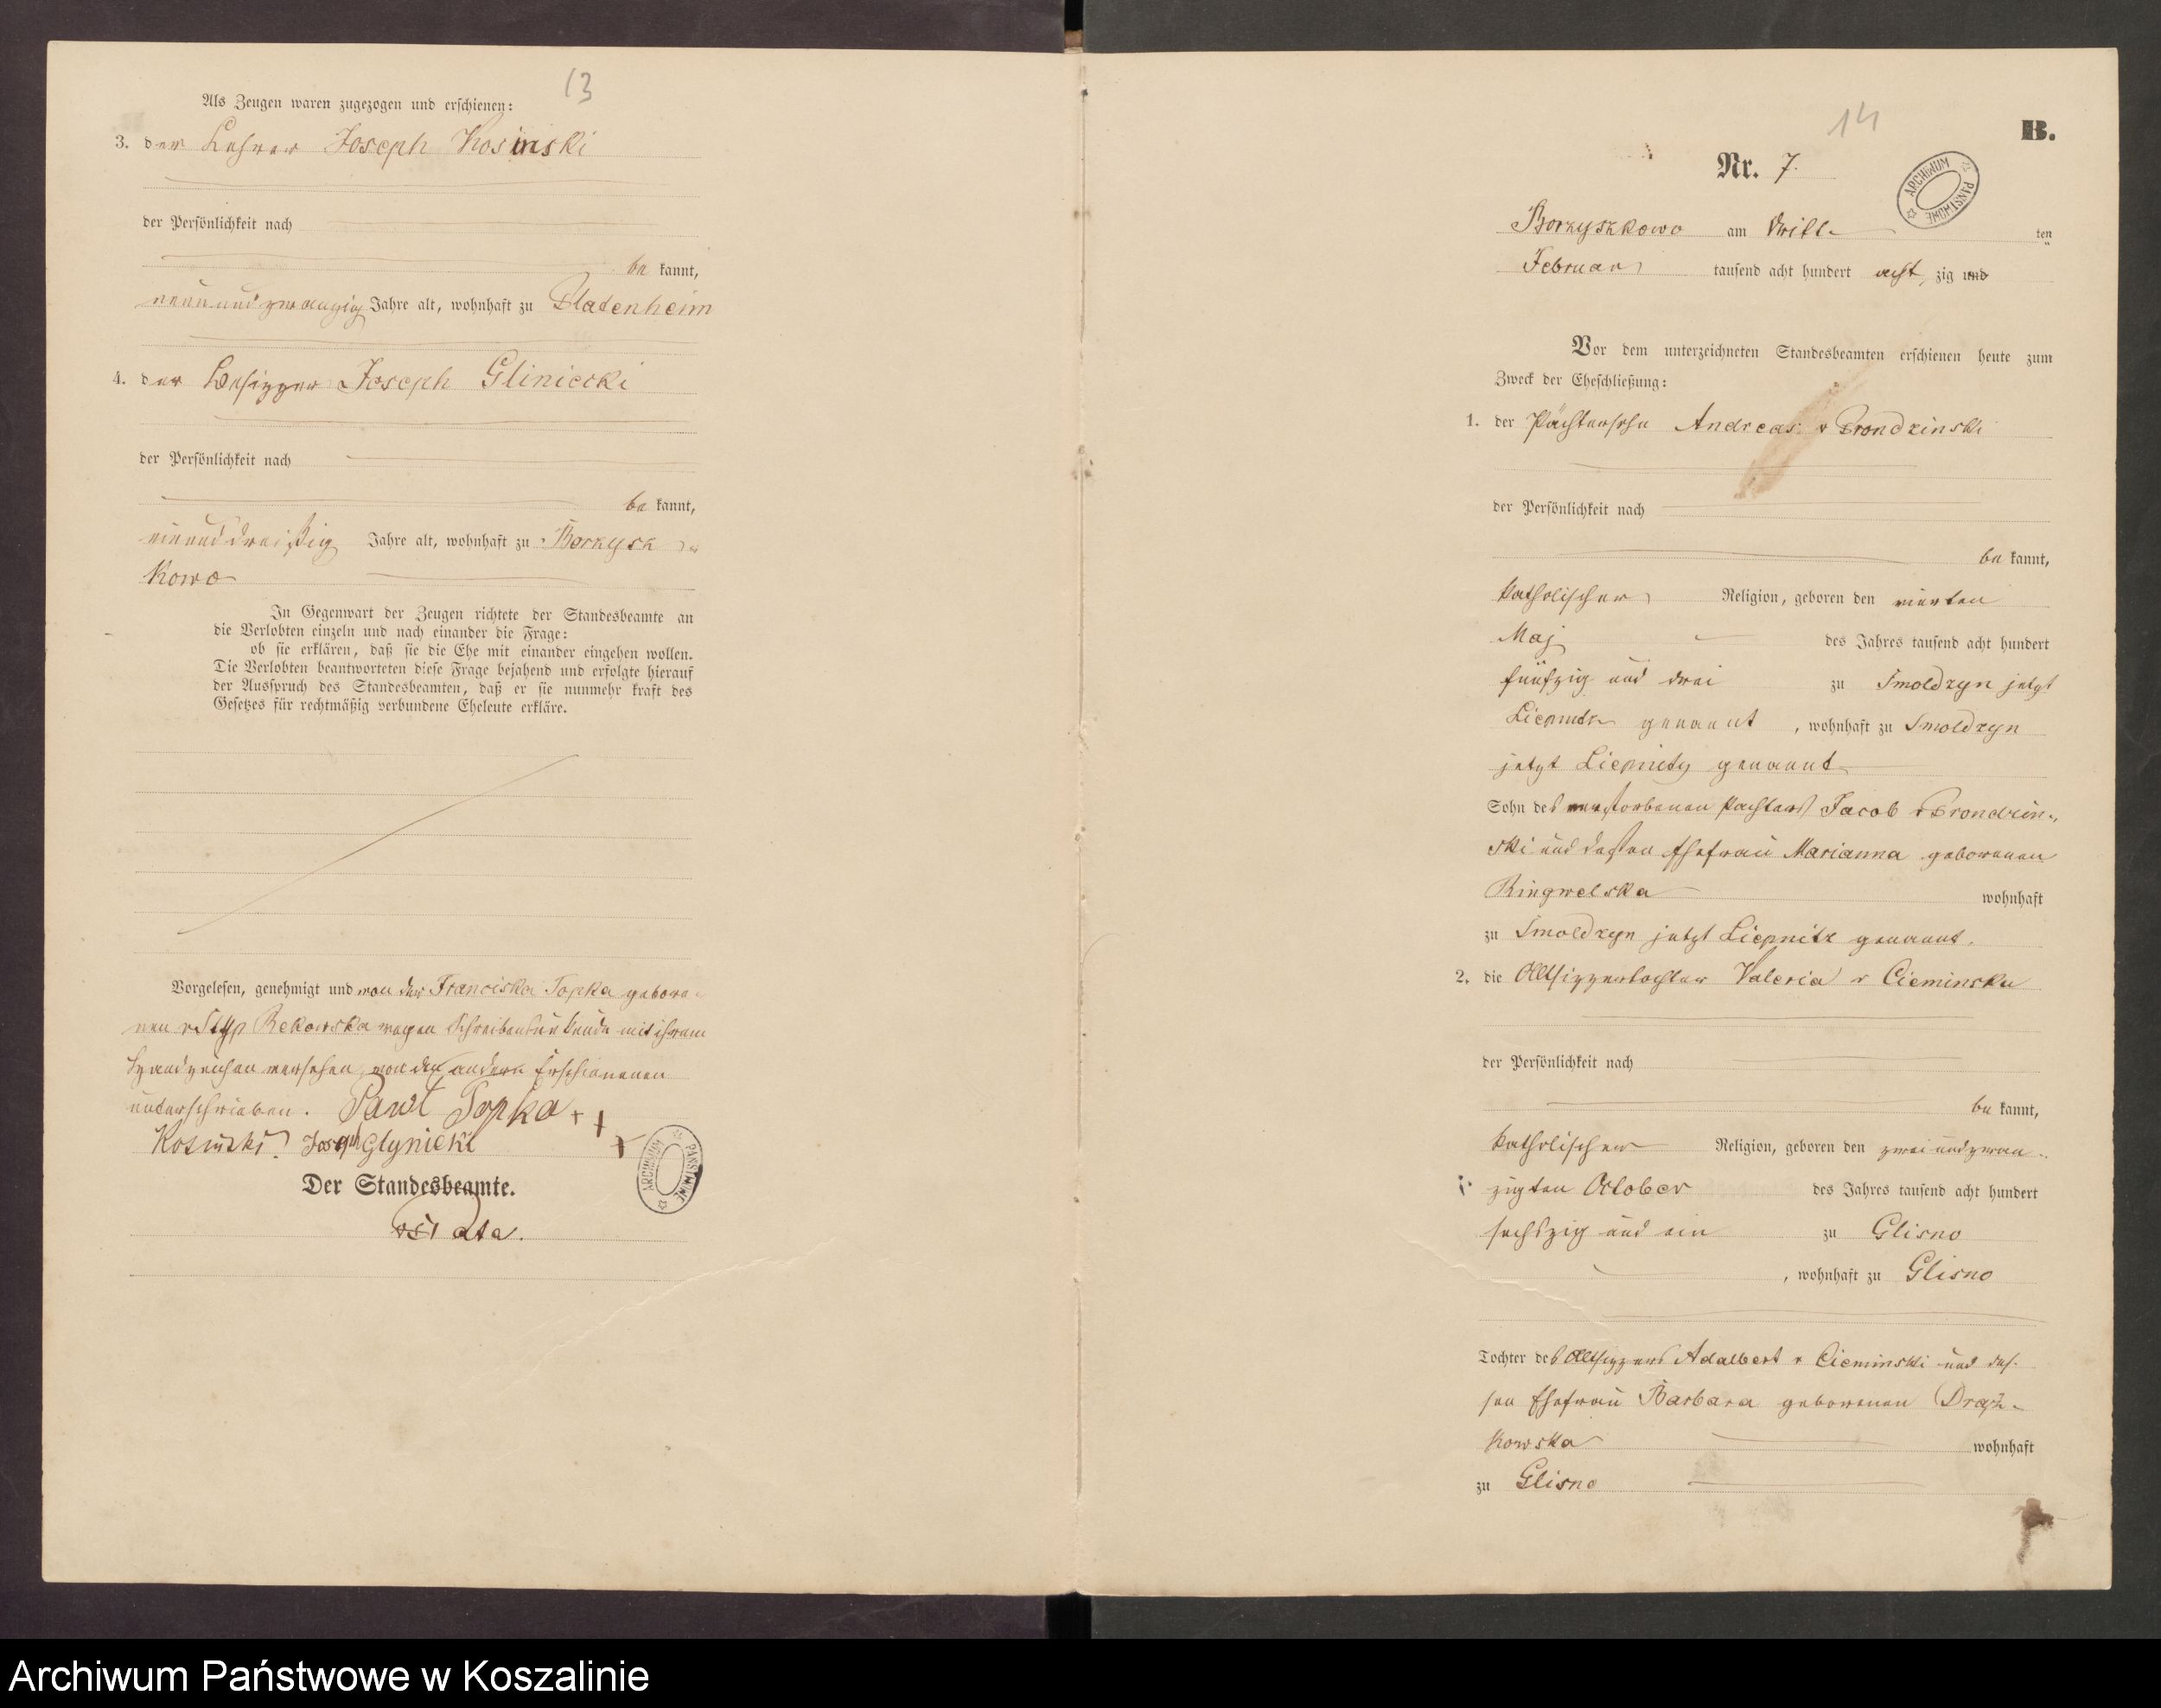 13
Als Zeugen waren zugezogen und erschienen:
3. der Lehrer Joseph Kosinski
der Persönlichkeit nach
be kannt,
neunundzwanzig Jahre alt, wohnhaft zu Pladenheim
4. der Besitzer Joseph Gliniecki
der Persönlichkeit nach
be kannt,
einunddreißig Jahre alt, wohnhaft zu Borzysz
kowo
In Gegenwart der Zeugen richtete der Standesbeamte an
die Verlobten einzeln und nach einander die Frage:
ob sie erklären, daß sie die Ehe mit einander eingehen wollen.
Die Verlobten beantworteten diese Frage bejahend und erfolgte hierauf
der Ausspruch des Standesbeamten, daß er sie nunmehr kraft des
Gesetzes für rechtmäßig verbundene Eheleute erkläre.
Vorgelesen, genehmigt und von der Franciska Topka gebore-
nen v Styp Rekowska wegen Schreibensunkunde mit ihrem
Handzeichen versehen, von den andern Erschienenen
unterschrieben. Pawł Topka +++
Kosinski. Joseph Glynicki
Der Standesbeamte.
ARCHIWUM PAŃSTWOWE
14
B.
Nr. 7.
ARCHIWUM PAŃSTWOWE
Borzyszkowo am dritt- ten
Februar tausend acht hundert acht zig und
Vor dem unterzeichneten Standesbeamten erschienen heute zum
Zweck der Eheschließung:
1. der Pächtersohn Andreas v Prondzinski
der Persönlichkeit nach
be kannt,
katholischer Religion, geboren den vierten
Maj des Jahres tausend acht hundert
fünfzig und drei zu Smoldzyn jetzt
Liepnitz genannt, wohnhaft zu Smoldzyn
jetzt Liepnitz genannt
Sohn des verstorbenen Pächters Jacob v Prondzin-
ski und dessen Ehefrau Marianna geborenen
Ringwelska wohnhaft
zu Smoldzyn jetzt Liepnitz genannt.
2. die Altsitzertochter Valeria v Cieminska
der Persönlichkeit nach
be kannt,
katholischer Religion, geboren den zweiundzwan-
zigten October des Jahres tausend acht hundert
sechszig und ein zu Glisno
, wohnhaft zu Glisno
Tochter des Altsitzers Adalbert v Cieminski und des-
sen Ehefrau Barbara geborenen Drąż-
kowska wohnhaft
zu Glisno
Archiwum Państwowe w Koszalinie